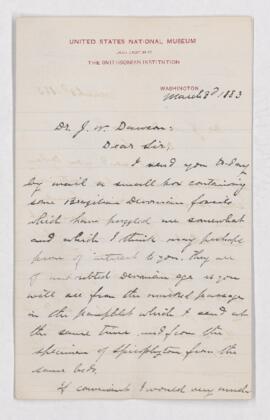 UNITED STATES NATIONAL MUSEUM
UNDER DIRECTION OF
THE SMITHSONIAN INSTITUTION
WASHINGTON
March 3d 1883
Dr. J. W. Dawson:
Dear Sir;
I send you to-day
by mail a small box containing
some Brazilian Devonian fossils
which have puzzled me somewhat
and which I think may perhaps
prove of interest to you. They are
of undoubted Devonian age as you
will see from the marked passages
in the pamphlet which I send at
the same time and from the
specimen of Spirophyton from the
same beds.
If convenient I would very much